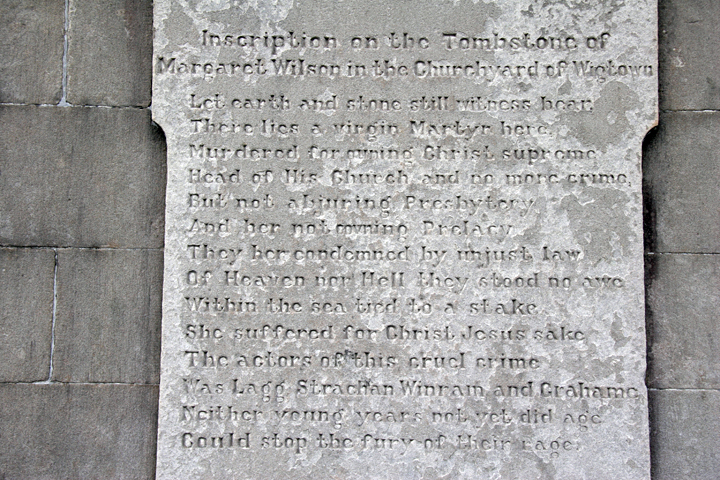 Inscription on the Tombstone of
Margaret Wilson in the Churchyard of Wigtown
Let earth and stone still witness bear,
There lies a virgin Martyr here,
Murdered for owning Christ supreme
Head of His Church and no more crime,
But not abjuring Presbytery
And her not owning Prelacy
They her condemned by unjust law
Of Heaven nor Hell they stood no awe
Within the sea tied to a stake
She suffered for Christ Jesus sake
The actors of this cruel crime
Was Lagg Strachan Winram and Grahame,
Neither young years not yet did age
Could stop the fury of their rage.